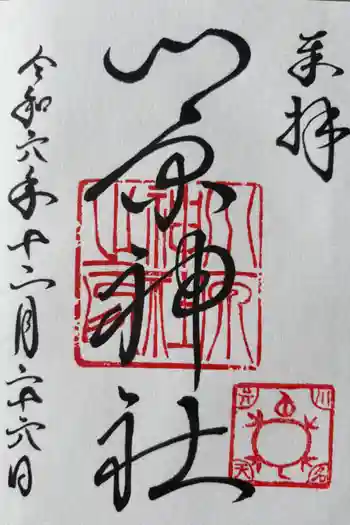 奉拝
川原神社
令和六年十二月二十六日
川名
弁天